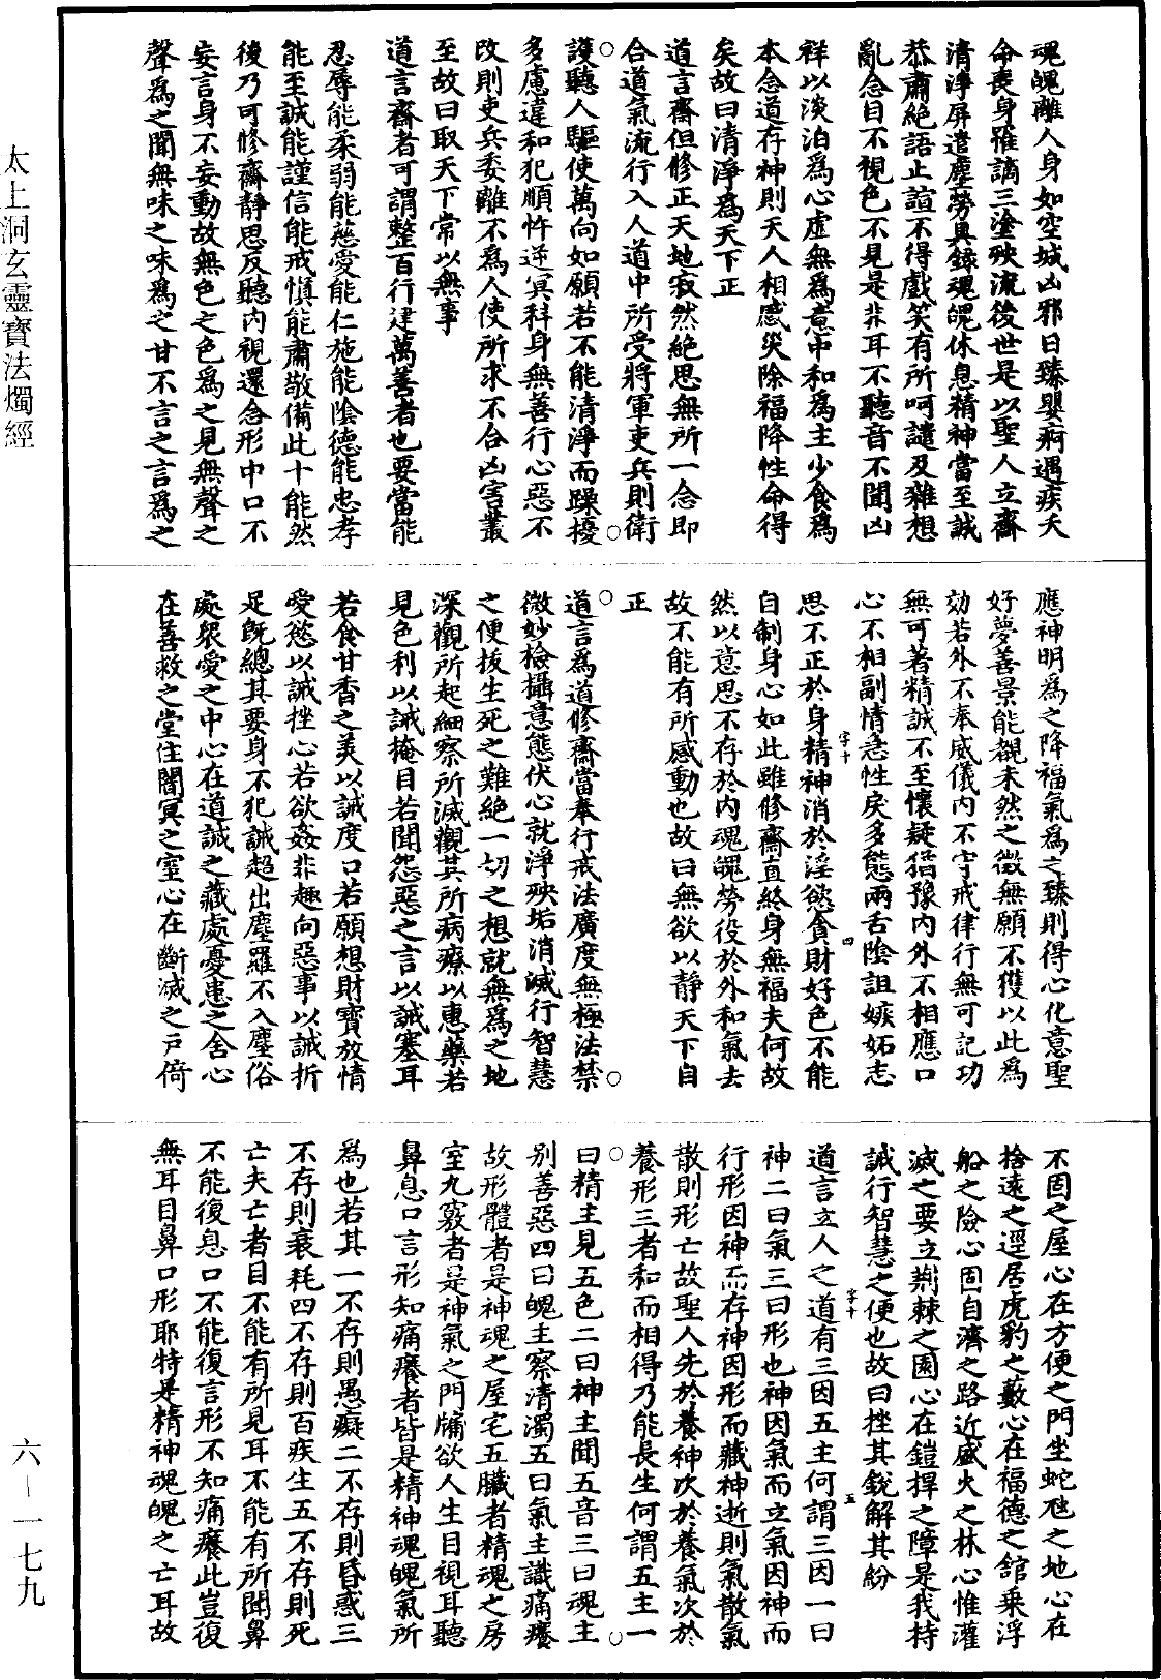 魂魄離人身如空城凶邪日臻嬰痾遇疾夭
命喪身罹讁三塗殃流後世是以聖人立齋
清淨屏遣塵勞具錄魂魄休息精神當至誠
恭肅絕語止諠不得戲笑有所呵譴及雜想
亂念目不視色不見是非耳不聽音不聞凶
祥以淡泊爲心虛無爲意中和爲主少食爲
本念道存神則天人相感災除福降性命得
矣故曰清淨爲天下正
道言齋但修正天地寂然絕思無所一念即
合道氣流行入人道中所受將軍吏兵則衛
護聽人驅使萬向如願若不能清淨而躁擾
多慮違和犯順忤逆冥科身無善行心惡不
改則吏兵委離不爲人使所求不合凶害叢
至故曰取天下常以無事
道言齋者可謂整百行建萬善者也要當能
忍辱能柔弱能慈愛能仁施能陰德能忠孝
能至誠能謹信能戒愼能肅敬備此十能然
後乃可修齋靜思反聽內視還念形中口不
妄言身不妄動故無色之色爲之見無聲之
聲爲之聞無味之味爲之甘不言之言爲之
應神明爲之降福氣爲之臻則得心化意聖
好夢善景能覩未然之徵無願不獲以此爲
効若外不奉威儀內不守戒律行無可記功
無可著精誠不至懷疑猶豫內外不相應口
心不相副情急性戾多態兩舌陰詛嫉妬志
思不正於身精神消於淫慾貪財好色不能
自制身心如此雖修齋直終身無福夫何故
然以意思不存於內魂魄勞役於外和氣去
故不能有所感動也故曰無欲以靜天下自
正
道言爲道修齋當奉行戒法廣度無極法禁
微妙檢攝意態伏心就淨殃垢消滅行智慧
之便拔生死之難絕一切之想就無爲之地
深觀所起細察所滅觀其所病療以惠藥若
見色利以誡掩目若聞怨惡之言以誡塞耳
若食甘香之美以誡度口若願想財寶放情
愛慾以誡挫心若欲姦非趣向惡事以誡折
足旣總其要身不犯誡超出塵羅不入塵俗
處衆愛之中心在道誡之藏處憂患之舍心
在善救之堂住闇冥之室心在斷滅之戶倚
不固之屋心在方便之門坐蛇虺之地心在
捨遠之逕居虎豹之藪心在福德之舘乘浮
船之險心固自濟之路近盛火之林心惟灌
滅之要立荊棘之園心在鎧捍之障是我持
誡行智慧之便也故曰挫其銳解其紛
道言立人之道有三因五主何謂三因一曰
神二曰氣三曰形也神因氣而立氣因神而
行形因神而存神因形而藏神逝則氣散氣
散則形亡故聖人先於養神次於養氣次於
養形三者和而相得乃能長生何謂五主一
曰精主見五色二曰神主聞五音三曰魂主
別善惡四曰魄主察清濁五曰氣主識痛癢
故形體者是神魂之屋宅五臟者精魂之房
室九竅者是神氣之門牖欲人生目視耳聽
鼻息口言形知痛癢者皆是精神魂魄氣所
爲也若其一不存則愚癡二不存則昏惑三
不存則衰耗四不存則百疾生五不存則死
亡夫亡者目不能有所見耳不能有所聞鼻
不能復息口不能復言形不知痛癢此豈復
無耳目鼻口形耶特是精神魂魄之亡耳故
字十
四
字十
五
太上洞玄靈寶法燭經
六－一七九